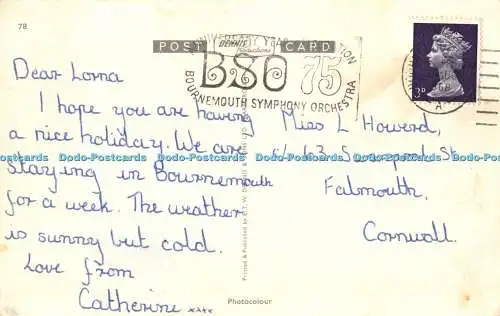 78
POST CARD
DENNIS
Productions
ANNIVERSARY YEAR
BSO 75
BOURNEMOUTH SYMPHONY ORCHESTRA
3D
Dear Lorna
I hope you are having
a nice holiday. We are
staying in Bournemouth
for a week. The weather
is sunny but cold.
Love from
Catherine xxxx
Miss L Howard,
63 St
Falmouth,
Cornwall.
Printed & Published by E.T.W. DENNIS & SONS LTD
Photocolour
Dodo-Postcards Dodo-Postcards Dodo-Postcards Dodo-Postcards Dodo-Postcards